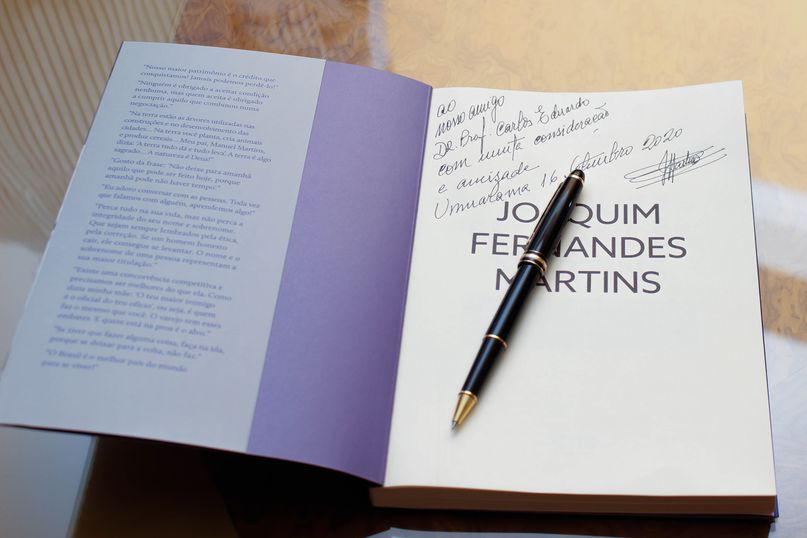 "Nosso maior patrimônio é o crédito que
conquistamos! Jamais podemos perdê-lo!"
"Ninguém é obrigado a aceitar condição
nenhuma, mas quem aceita é obrigado
a cumprir aquilo que combinou numa
negociação."
"Na terra estão as árvores utilizadas nas
construções e no desenvolvimento das
cidades... Na terra você planta, cria animais
e produz cereais... Meu pai, Manuel Martins,
dizia: 'A terra tudo dá e tudo leva'. A terra é algo
sagrado... A natureza é Deus!"
"Gosto da frase: 'Não deixe para amanhã
aquilo que pode ser feito hoje, porque
amanhã pode não haver tempo'."
"Eu adoro conversar com as pessoas. Toda vez
que falamos com alguém, aprendemos algo!"
"Perca tudo na sua vida, mas não perca a
integridade do seu nome e sobrenome.
Que sejam sempre lembrados pela ética,
pela correção. Se um homem honesto
cair, ele consegue se levantar. O nome e o
sobrenome de uma pessoa representam a
sua maior titulação."
"Existe uma concorrência competitiva e
precisamos ser melhores do que ela. Como
dizia minha mãe: 'O teu maior inimigo
é o oficial do teu ofício', ou seja, é quem
faz o mesmo que você. O varejo tem esses
embates. E quem está na proa é o alvo."
"Se tiver que fazer alguma coisa, faça na ida,
porque se deixar para a volta, não faz."
"O Brasil é o melhor país do mundo
para se viver!"
ao
nosso amigo
Prof. Carlos Eduardo
com muita consideração
e amizade
Umuarama 16 Setembro 2020
JOAQUIM
FERNANDES
MARTINS